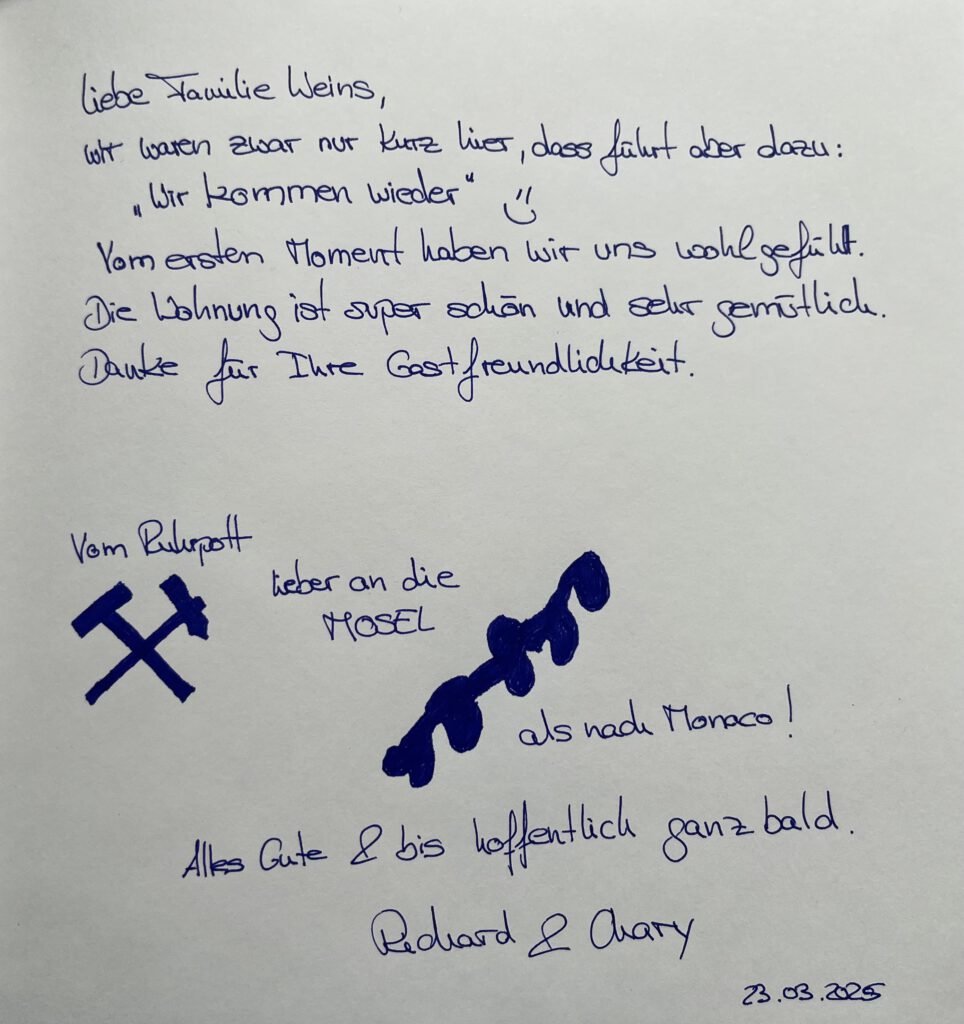 Liebe Familie Weins,
wir waren zwar nur kurz hier, dass führt aber dazu:
„Wir kommen wieder“
Vom ersten Moment haben wir uns wohlgefühlt.
Die Wohnung ist super schön und sehr gemütlich.
Danke für Ihre Gastfreundlichkeit.
Vom Ruhrpott
lieber an die
MOSEL
als nach Monaco!
Alles Gute & bis hoffentlich ganz bald.
Richard & Chary
23.03.2025